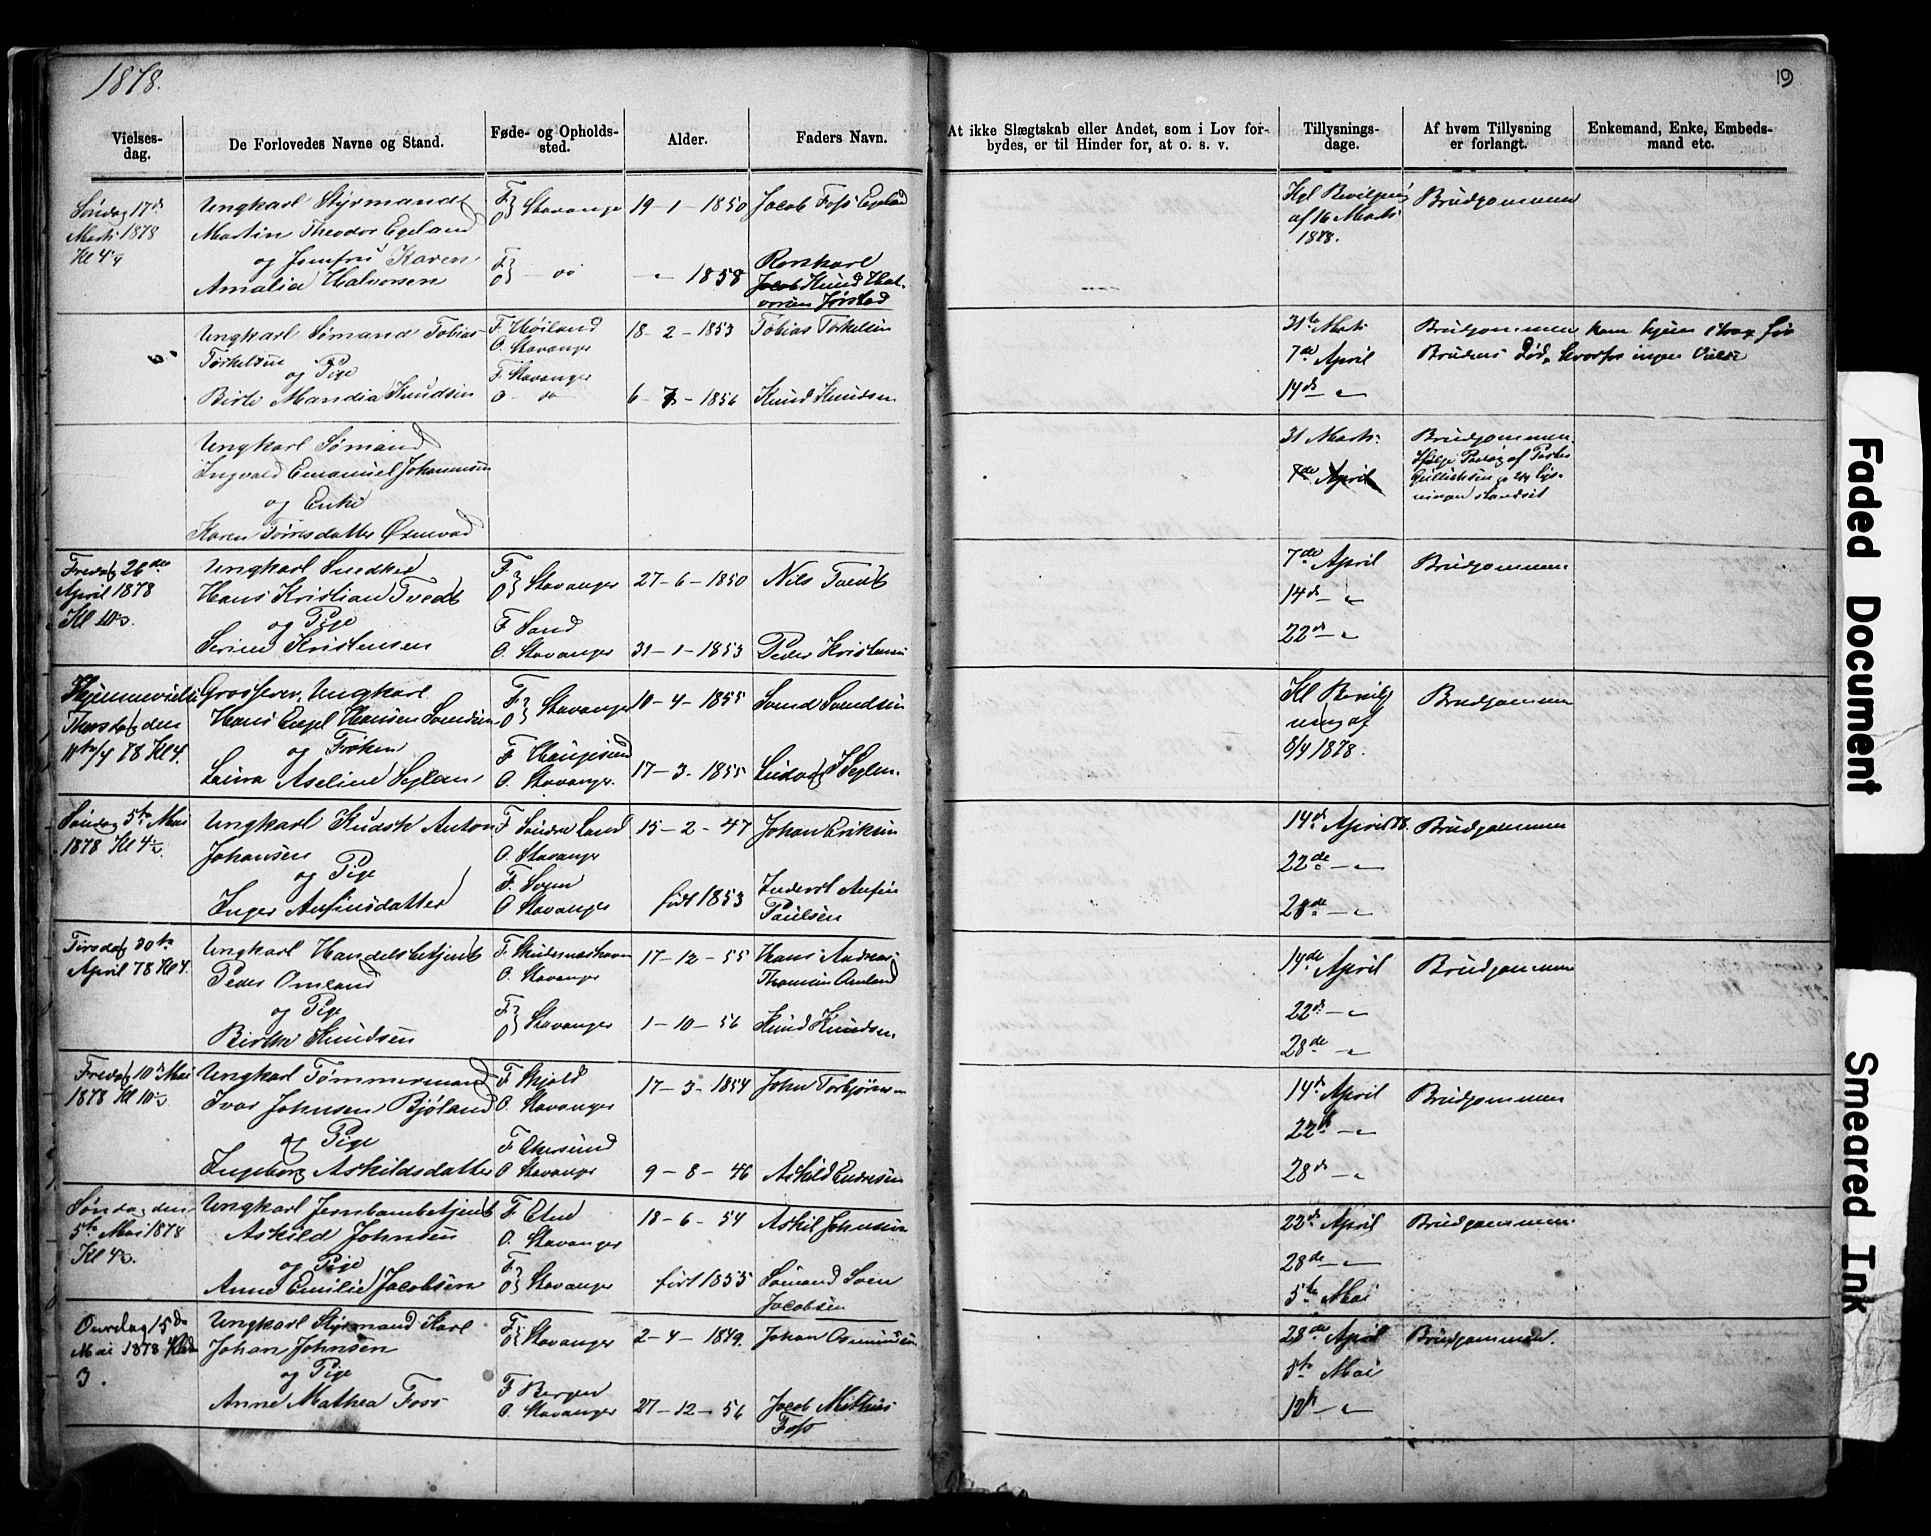 1878.
19
Vielses-
dag.
De Forlovedes Navne og Stand.
Føde- og Opholds-
sted.
Alder.
Faders Navn.
At ikke Slægtskab eller Andet, som i Lov for-
bydes, er til Hinder for, at o. s. v.
Tillysnings-
dage.
Af hvem Tillysning
er forlangt.
Enkemand, Enke, Embeds-
mand etc.
Søndag 17de
Marts 1878
Kl 4
Ungkarl Styrmand
Martin Theodor Egeland
og Jomfru Karen
Amalia Halvorsen
F } Stavanger
O
F } — do
O
19 - 1 - 1850
" 1858
Jacob Foss Egeland
Knud Hal-
vorsen Jørstad
Kgl Bevilgning
af 16 Marts
1878.
Brudgommen
Ungkarl Sømand Tobias
Torkelsen
og Pige
Birte Mandia Knudsen
F. Høiland
O. Stavanger
F. Stavanger
O — do
18 - 2 - 1853
6 - 7 - 1856
Tobias Torkelsen
Knud Knudsen
31te Marts
7de April
14de — "
Brudgommen kom hjem strax før
Brudens Død, hvorfor ingen Vielse
Ungkarl Sømand
Ingvald Emanuel Johannesen
og Enke
Karen Tørresdatter
31 Marts
7de April
Brudgommen.
Ungkarl Snedker
Fredag 26de
April 1878
Kl 10
Hans Kristian Tvedt
og Pige
Serine Kristensen
F } Stavanger
O
F Sand
O. Stavanger
27 - 6 - 1850
31 - 1 - 1853
Nils Tvedt
Peder Kristensen
7de April
14de — "
22de — "
Brudgommen
Hjemmevielse
Thorsdag den
11te/4 78 Kl 4.
Grosserer, Ungkarl
Hans Engel Hansen Sømdsen
og Frøken
Laura Aseline Seglem
F } Stavanger
O
F Haugesund
O. Stavanger.
10 - 4 - 1855
17 - 3 - 1855
Ludvig Seglem.
Kl Bevilg
ning af
8/4 1878.
Brudgommen
Søndag 5te Mai
1878 Kl 4
Ungkarl Kudsk Anton
Johansen
og Pige
Inger Anfinsdatter
F Søndre Land
O. Stavanger
F. Sogn
O Stavanger
15 - 2 - 47
født 1853
Johan Eriksen
Inderst Anfin
Paulsen
14de April 78.
22de — "
28de — "
Brudgommen
Tirsdag 30te
April 78 Kl 4.
Ungkarl Handelsbetjent
Peder Omland
og Pige
Birthe Knudsen
F. Skudesneshavn
O. Stavanger
F } Stavanger
O
17 - 12 - 55
1 - 10 - 56
Hans Andreas
Thomsen Omland
Knud Knudsen
14de April
22de — "
28de — "
Brudgommen
Fredag 10de Mai
1878 Kl 10
Ungkarl Tømmermand
Ivar Johnsen Bjøland
og Pige
Ingeborg Askildsdatter
F Skjold
O. Stavanger
F. Ekersund
O Stavanger
17 - 3 - 1854
9 - 8 - 46
John Torbjørnsen
Askild Endresen
14de April
22de — "
28de — "
Brudgommen
Søndag den
5te Mai 1878
Kl 4
Ungkarl Jernbanebetjent
Askild Johnsen
og Pige
Anne Emilie Jacobsen
F Etne
O. Stavanger
F } Stavanger
O
18 - 6 - 54
født 1855
Askil Johnsen
Sømand Sven
Jacobsen
22de April
28de — "
5te Mai
Brudgommen.
Onsdag 15de
Mai 1878
3.
Ungkarl Styrmand Karl
Johan Johnsen
og Pige
Anne Mathea Foss
F } Stavanger
O
F Bergen
O. Stavanger
2 - 4 - 1849.
27 - 12 - 56
Johan Osmundsen
Jacob Mathias
Foss
28de April
5te Mai
12te — "
Brudgommen.
Faded Document
Smeared Ink